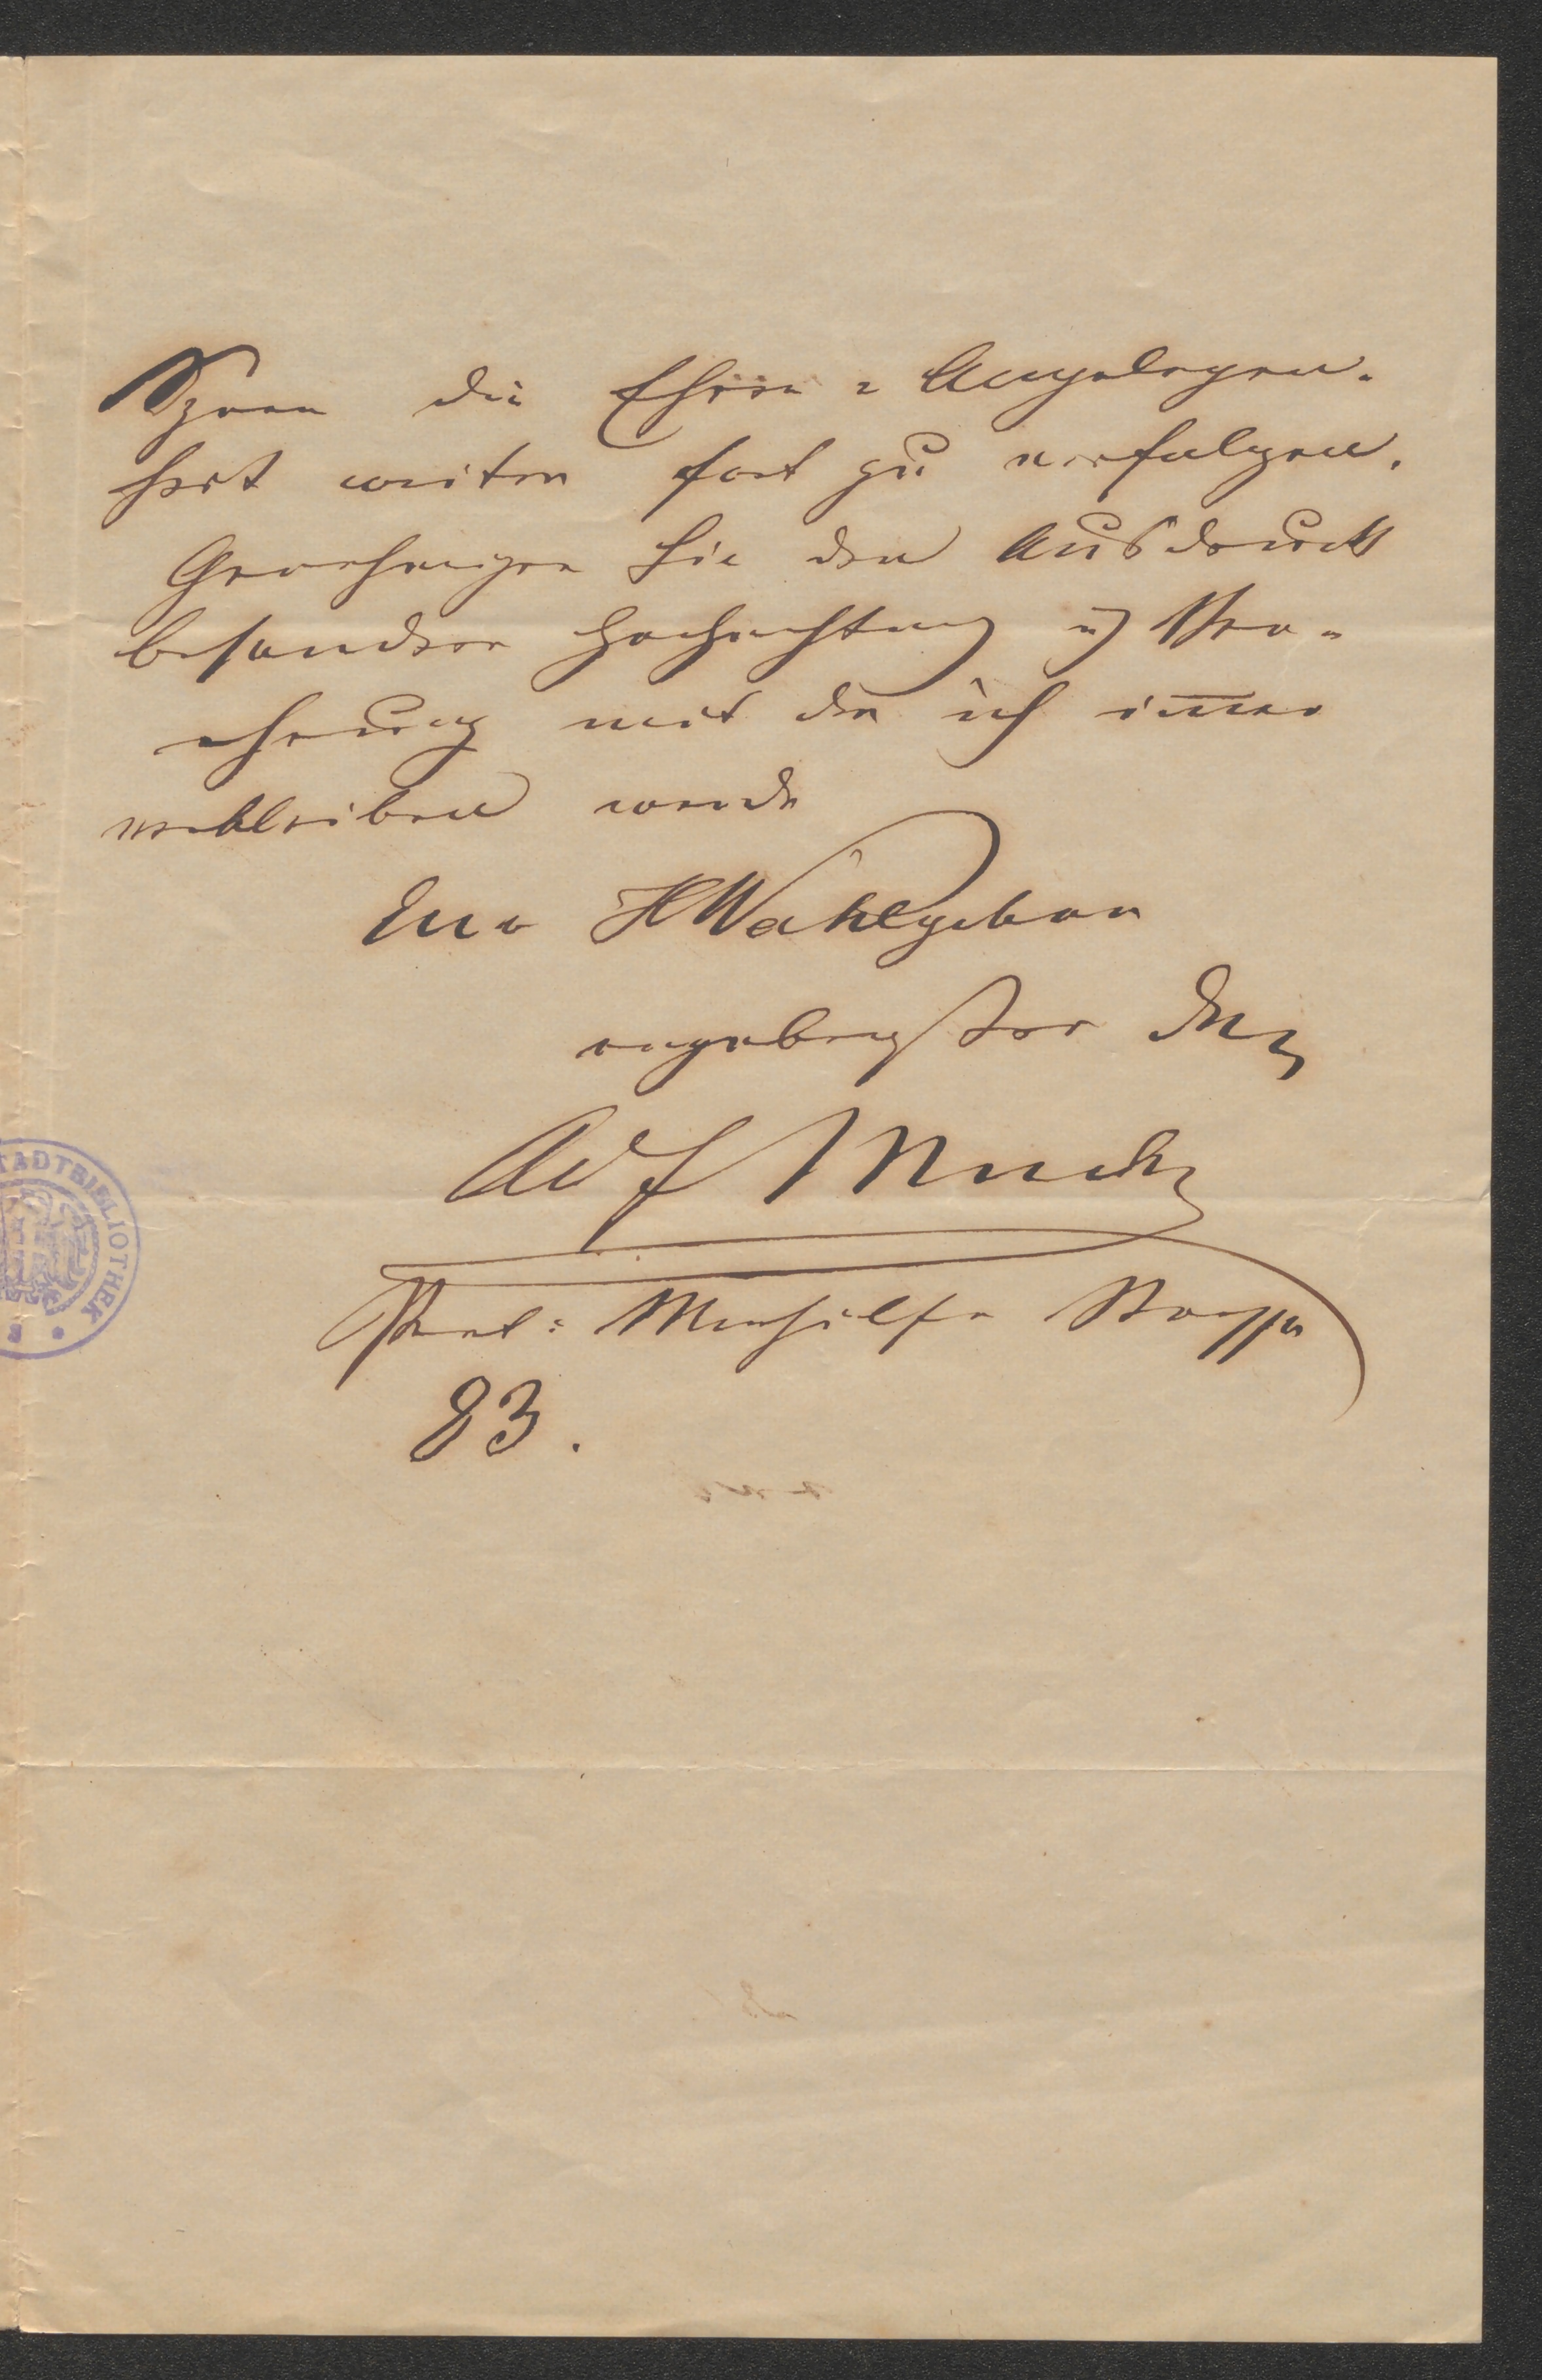 die Ehren = Angelegen-
heit weiter fort zu verfolgen.
Genehmigen Sie den Ausdruck
besonderer Hochachtung u Ver-
ehrung mit der ich im̄er
verbleiben werde
Euer HWohlgeboren
ergebenster
Adf
83.
STADTBIBLIOTHEK